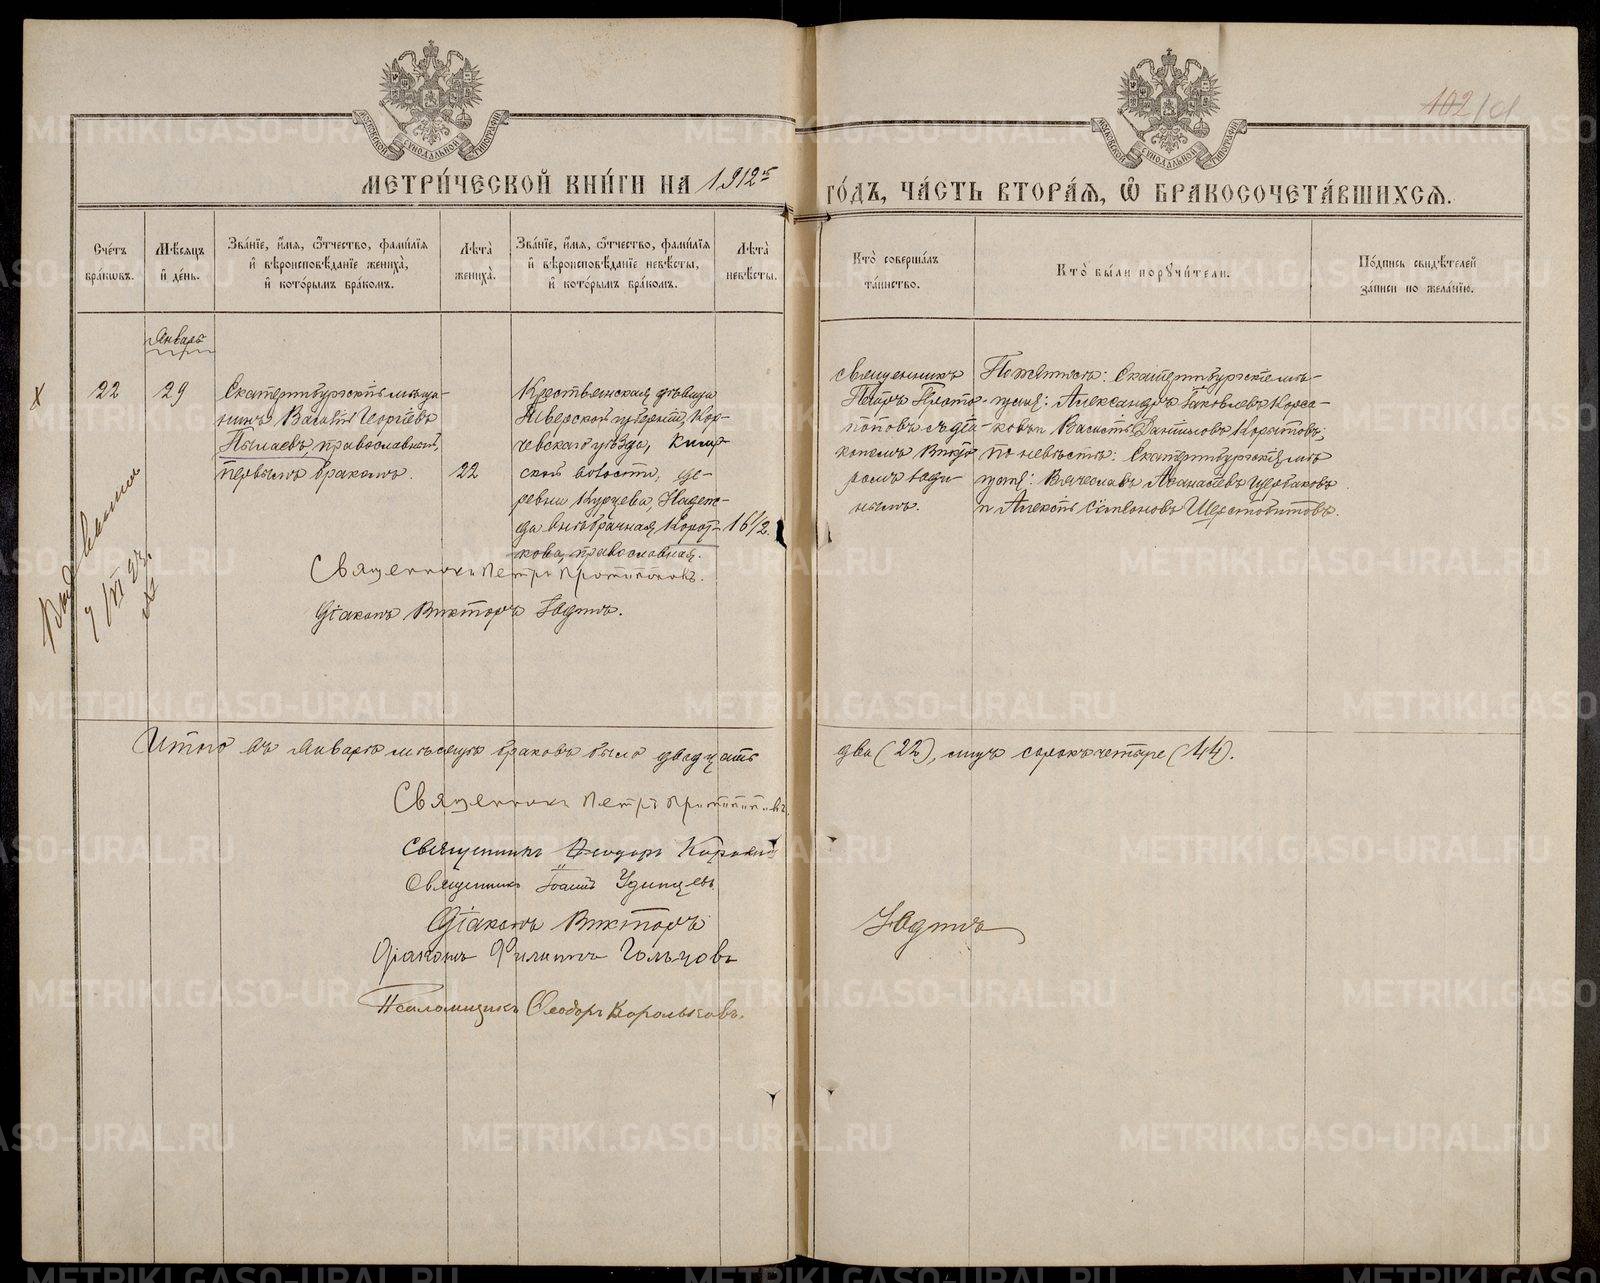 МОСКОВСКОЙ СУНОДАЛЬНОЙ ТИПОГРАФІИ
МОСКОВСКОЙ СУНОДАЛЬНОЙ ТИПОГРАФІИ
102
МЕТРИ́ЧЕСКОЙ КНИ́ГИ НА 1912й ГО́ДЪ, ЧА́СТЬ ВТОРА́Я, Ѡ҆ БРАКОСОЧЕТА́ВШИХСЯ.
Сче́тъ бра́ковъ.
Мѣ́сяцъ и҆ де́нь.
Зва́нїе, и҆́мя, ѻ҆́тчество, фами́лїя и҆ вѣроисповѣ́данїе жениха̀, и҆ кото́рымъ бра́комъ.
Лѣта̀ жениха̀.
Зва́нїе, и҆́мя, ѻ҆́тчество, фами́лїя и҆ вѣроисповѣ́данїе невѣ́сты, и҆ кото́рымъ бра́комъ.
Лѣта̀ невѣ́сты.
Кто̀ соверша́лъ та́инство.
Кто̀ бы́ли поручи́тели.
По́дпись свидѣ́телей за́писи по жела́нїю.
Январь
22
29
Екатеринбургскій мѣща-
нинъ Василій Георгіевъ
Пылаевъ, православный,
первымъ бракомъ.
22
Крестьянская дѣвица
Тверской губерніи, Кор-
чевскаго уѣзда,
ской волости, де-
ревни Курцева, Надеж-
да внѣбрачная Корот-
кова, православная.
16½.
Священникъ
Петръ Прото-
поповъ съ діа-
кономъ Викто-
ромъ Юди-
нымъ.
По женихѣ: Екатеринбургскіе мѣ-
щане: Александръ Іаковлевъ Корса-
ковъ и Василій Даниловъ Корытовъ;
по невѣстѣ: Екатеринбургскіе мѣ-
щане: Вячеславъ Аѳанасіевъ Щербаковъ
и Алексій Симеоновъ Шерстобитовъ.
Священникъ Петръ Протопоповъ.
Діаконъ Викторъ Юдинъ.
Итого въ Январѣ мѣсяцѣ браковъ было двадцать два (22), лицъ сорокъ четыре (44).
Священникъ Петръ Протопоповъ
Священникъ Ѳеодоръ
Священникъ Іоаннъ Удинцевъ
Діаконъ Викторъ Юдинъ
Діаконъ Филиппъ Гольцовъ
Псаломщикъ Ѳеодоръ Корольковъ.
METRIKI.GASO-URAL.RU